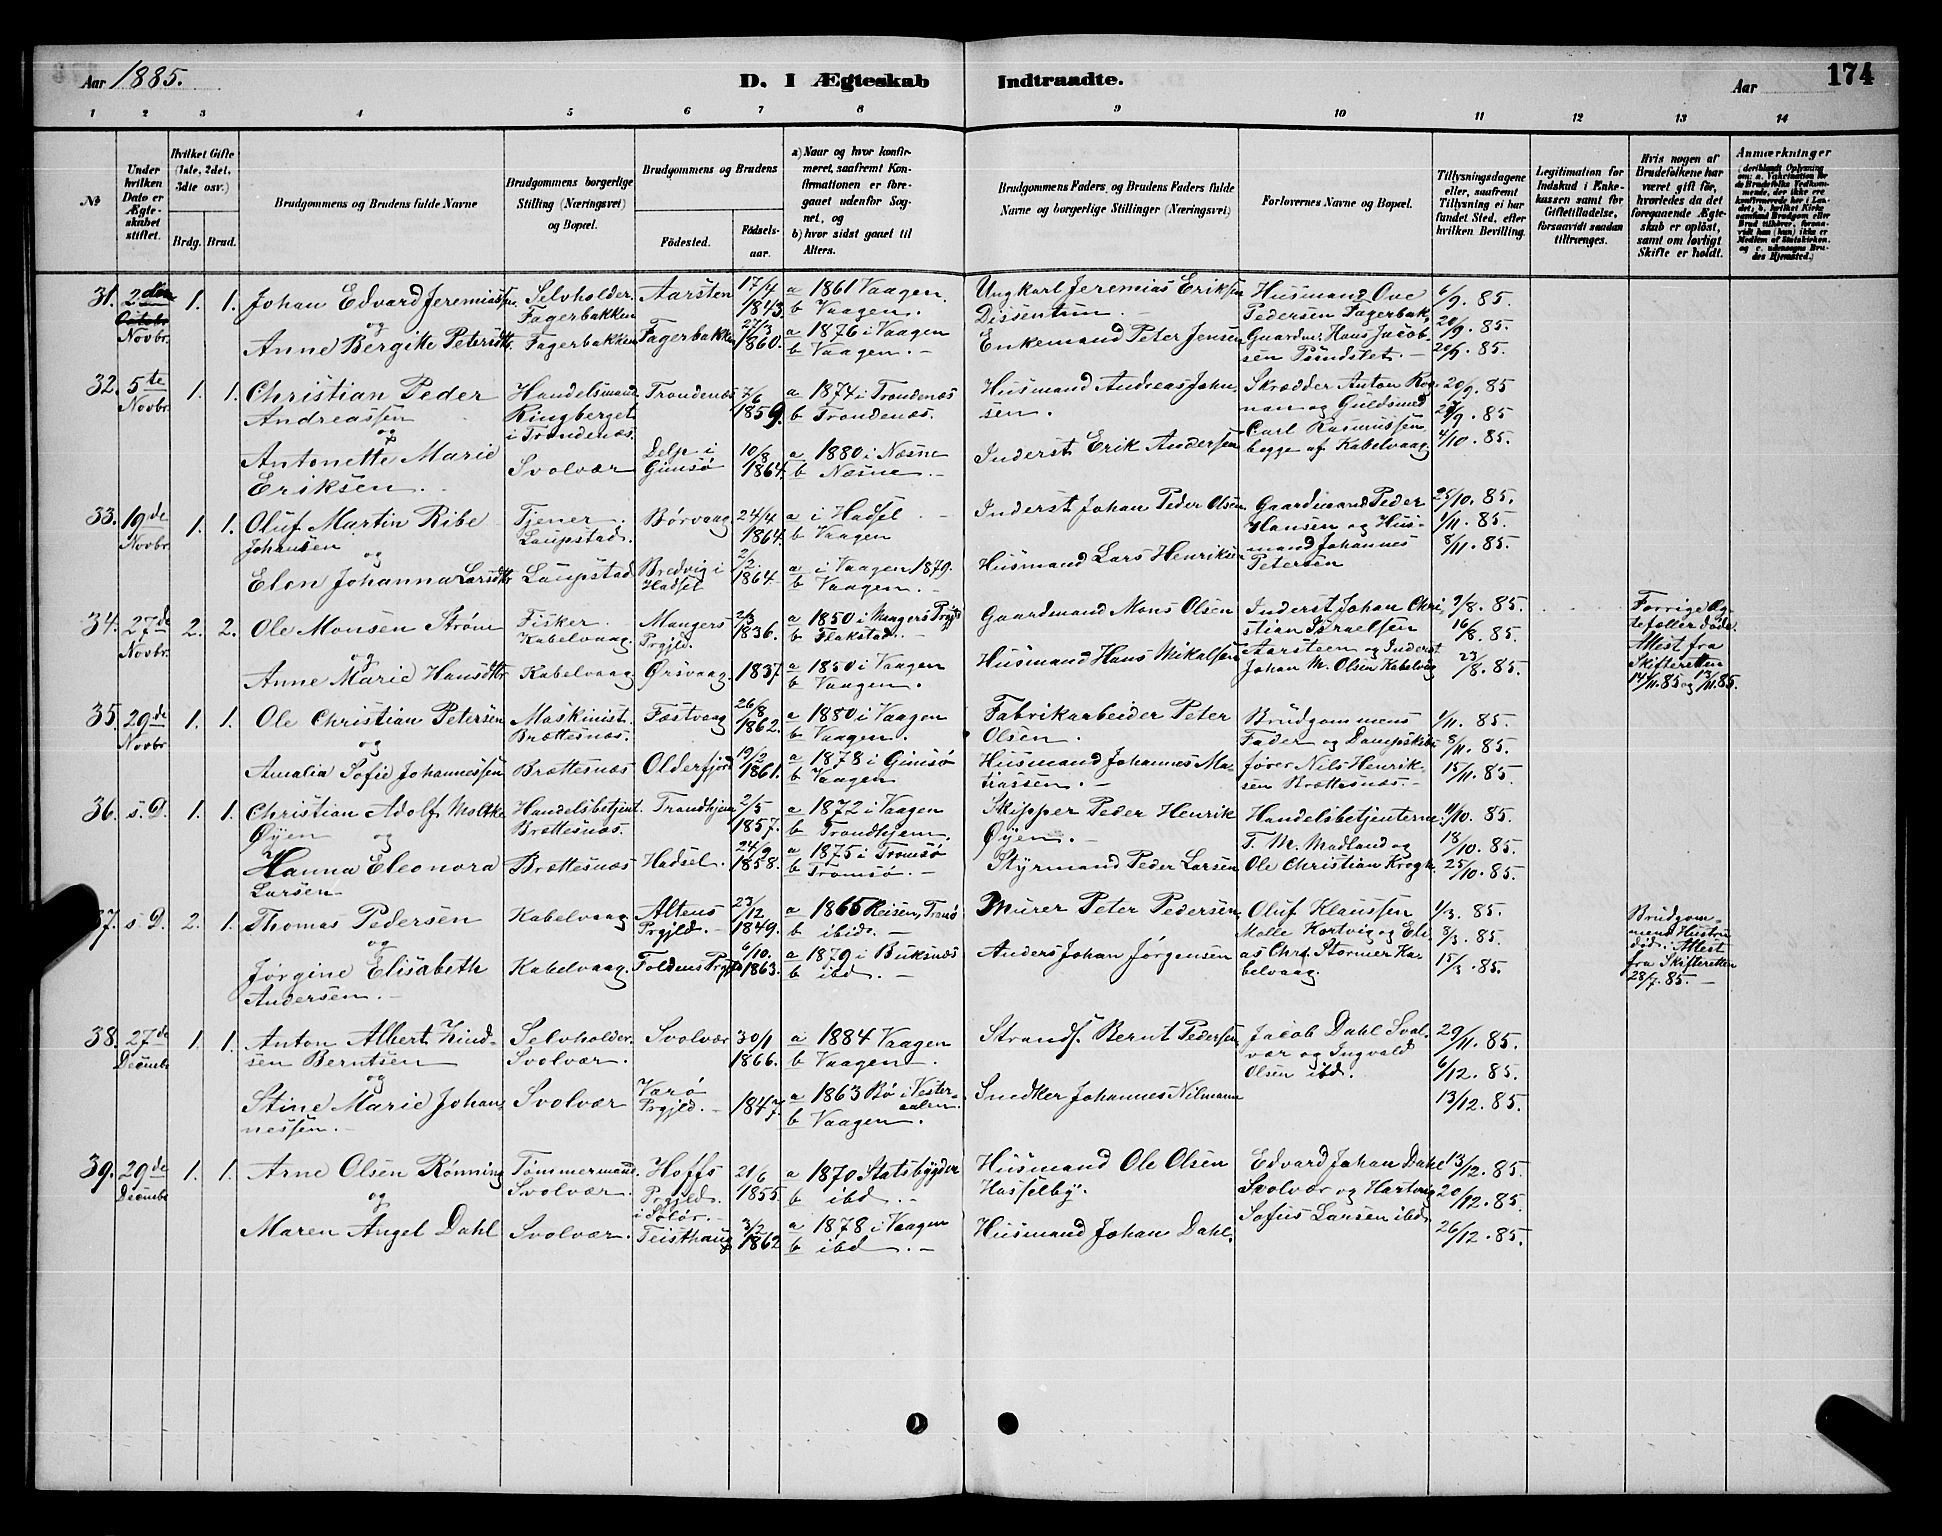 Aar 1885. D. I Ægteskab Indtraadte. Aar 174
1 2 3 4 5 6 7 8 9 10 11 12 13 14
№
Under hvilken Dato er Ægteskabet stiftet.
Hvilket Gifte (1ste, 2det, 3die osv.)
Brdg. Brud.
Brudgommens og Brudens fulde Navne
Brudgommens borgerlige Stilling (Næringsvei) og Bopæl.
Brudgommens og Brudens
Födested. Födselsaar.
a) Naar og hvor konfirmeret, saafremt Konfirmationen er foregaaet udenfor Sognet, og
b) hvor sidst gaaet til Alters.
Brudgommens Faders, og Brudens Faders fulde Navne og borgerlige Stillinger (Næringsvei)
Forlovernes Navne og Bopæl.
Tillysningsdagene eller, saafremt Tillysning ei har fundet Sted, efter hvilken Bevilling.
Legitimation for Indskud i Enkekassen samt for Giftetilladelse, forsaavidt saadan tiltrænges.
Hvis nogen af Brudefolkene har været gift för, hvorledes da det foregaaende Ægteskab er oplöst, samt om lovligt Skifte er holdt.
Anmærkninger
31. 2den Octobr Novbr. 1. 1. Johan Edvard Jeremiassen Selvholder Fagerbakken Aarsten 17/4 1843 a 1861 Vaagen. b Vaagen. Ungkarl Jeremias Eriksen Dissentim. Husmand Ove Pedersen Fagerbak. 6/9. 85.
og
Anne Bergitte Petersdtr. Fagerbakken Fagerbakken 27/3 1860. a 1876 i Vaagen b Vaagen. Enkemand Peter Jensen Gaardm: Hans Jacobsen 20/9. 85. 20/9. 85.
32. 5te Novbr. 1. 1. Christian Peder Andreassen Handelsmand Ringberget i Trondenæs. Trondenæs 7/6 1859. a 1874 i Trondenæs b Trondenæs. Husmand Andreas Johnsen. Skrædder Anton Rognan og Guldsmed Carl Rasmussen begge af Kabelvaag 20/9. 85 27/9. 85 4/10. 85.
og
Antonette Marie Eriksen. Svolvær Delp i Gimsø 10/8 1864. a 1880 i Næsne b Næsne. Inderst Erik Andersen
33. 19de Novbr. 1. 1. Oluf Martin Ribe Johansen Tjener Laupstad. Børvaag 24/4 1864. a i Hadsel b Vaagen Inderst Johan Peder Olsen Gaardmand Peder Hansen og Husmand Johannes Petersen 25/10. 85. 1/11. 85. 8/11. 85.
og
Elen Johanna Larsdtr. Laupstad Bredvig i Hadsel 2/2 1864. a i Vaagen 1879. b Vaagen. Husmand Lars Henriksen
34. 27de Novbr. 2. 2. Ole Monsen Strøm Fisker Kabelvaag Mangers Prgjld. 2/3 1836. a 1850 i Mangers Prgjld b Flakstad. Gaardmand Mons Olsen Inderst Johan Christian Israelsen Aarsteen og Inderst Johan M. Olsen Kabelvaag 9/8. 85. 16/8. 85. 23/8. 85. Forrige Ægtefæller døde. Attest fra Skifteretten 14/11. 85 og 17/11. 85.
og
Anne Marie Hansdtr. Kabelvaag Ørsvaag 1837. a 1850 i Vaagen b Vaagen. Husmand Hans Mikalsen
35. 29de Novbr. 1. 1. Ole Christian Petersen Maskinist Brættesnæs. Fæstvaag 26/8 1862. a 1880 i Vaagen b Vaagen. Fabrikarbeider Peter Olsen. Brudgommens Fader og Dampskibsfører Nils Henriksen Brættesnæs. 1/11. 85. 8/11. 85. 15/11. 85.
og
Amalia Sofie Johannessen Brættesnæs Olderfjord 19/2 1861. a 1878 i Gimsø b Vaagen Husmand Johannes Matiassen.
36. s. D. 1. 1. Christian Adolf Moltke Øyen Handelsbetjent Brættesnæs. Trondhjem 2/5 1857. a 1872 i Vaagen b Trondhjem. Skipper Peder Henrik Øyen. Handelsbetjenterne T. M. Madland og Ole Christian Krogh. 11/10. 85. 18/10. 85. 25/10. 85.
og
Hanna Eleonora Larsen Brættesnæs Hadsel. 24/9 1858. a 1875 i Tromsø b Tromsø. Styrmand Peder Larsen
37. s. D. 2. 1. Thomas Pedersen Kabelvaag Altens Prgjld. 23/12 1849. a 1865 Reisen, Tromsø b ibid. Murer Peter Pedersen Oluf Klaussen Molle Kortvig og Elias Chrf. Stormer Kabelvaag. 1/3. 85. 8/3. 85. 15/3. 85. Brudgommens Hustru død. Attest fra Skifteretten 28/7. 85.
og
Jørgine Elisabeth Andersen. Kabelvaag. Foldens Prgjld 6/10. 1863. a 1879 i Buksnæs b ibd. Anders Johan Jørgensen
38. 27de Decembr 1. 1. Anton Albert Zindsen Berntsen Selvholder Svolvær. Svolvær 30/1 1866. a 1884 Vaagen b Vaagen. Strands. Bernt Pedersen Jacob Dahl Svolvær og Ingvald Olsen ibd. 29/11. 85. 6/12. 85. 13/12. 85.
og
Stine Marie Johannessen. Svolvær Værø Prgjld. 1847. a 1863 Bø i Vesteraalen. b Vaagen. Snedker Johannes Nilmann
39. 29de Decembr 1. 1. Arne Olsen Rønning Tømmermand Svolvær. Hoffs Prgjld. i Solør. 21/6 1855. a 1870 Statsbygden b ibd. Husmand Ole Olsen Hasselby. Edvard Johan Dahl Svolvær og Hartvig Sofus Larsen ibd 13/12. 85. 20/12. 85. 26/12. 85.
og
Maren Angel Dahl Svolvær. Teisthaug 3/2 1862 a 1878 i Vaagen b ibd. Husmand Johan Dahl.